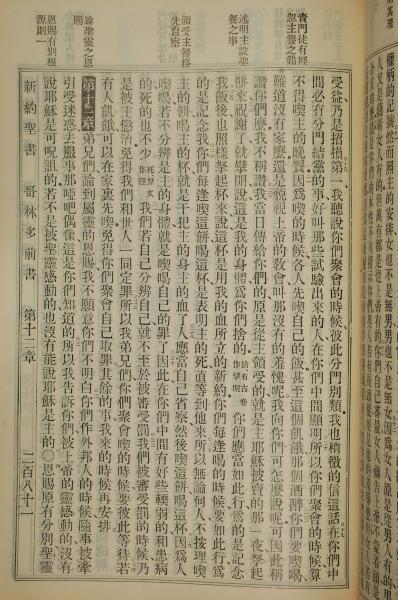 責門徒有輕
忽主餐之錯
述明主設聖
餐之事
領受主餐務
先自察
論聖靈之恩
賜
恩賜有別根
源則一
受益乃是招損第一我聽說你們聚會的時候彼此分門別類我也稍微的信這話在你們中
間必有分門結黨的事好叫那些試驗出來的人在你們中間顯明所以你們聚會的時候算
不得喫主的晚餐因爲喫的時候各人先喫自己的飯甚至這個飢餓那個酒醉你們要喫喝
難道沒有家麽還是藐視上帝的教會叫那沒有的羞愧呢我向你們可怎麽說呢可因此稱
讚你們麽我不稱讚我當日傳給你們的原是從主領受的就是主耶穌被賣的那一夜拏起
餅來祝謝了就擘開說這是我的身體爲你們捨的捨有古卷作擘開你們應當如此行爲的是記念
我飯後也照樣拏起杯來說這杯是用我的血所立的新約你們每逢喝的時候要如此行爲
的是記念我你們每逢喫這餅喝這杯是表明主的死直等到他來所以無論何人不按理喫
主的餅喝主的杯就是干犯主的身主的血了人應當自己省察然後喫這餅喝這杯因爲人
喫喝若不分辨是主的身體就是喫喝自己的罪了因此在你們中間有好些軟弱的和患病
的死的也不少死原文作睡我們若自己分辨自己就不至於被審受罰我們被審受罰的時候乃
是被主懲治免得我們和世人一同定罪所以我弟兄們你們聚會喫的時候要彼此等待若
有人飢餓可以在家裏先喫免得你們聚會自己取罪其餘的事我來的時候再安排
第十二章弟兄們論到屬靈的恩賜我不願意你們不明白你們作外邦人的時候隨事被牽
引受迷惑去服事那啞吧偶像這是你們知道的所以我告訴你們被上帝的靈感動的沒有
說耶穌是可咒詛的若不是被聖靈感動的也沒有能說耶穌是主的〇恩賜原有分別聖靈
新約聖書 哥林多前書 第十二章 二百八十一